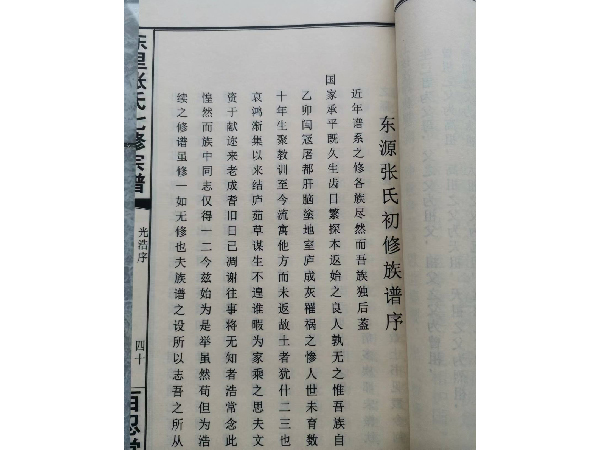 东源张氏初修族谱序
近年谱系之修各族尽然而吾族独后盖
国家承平既久生齿日繁探木返始之良人孰无之惟吾族自
乙卯闰寇屠都肝脑塗地室庐成灰罹祸之惨人世未育数
十年生聚教训至今流寓他方而未返故土者犹什二三也
哀鸿渐集以来结庐茹草谋生不遑谁暇为家乘之思夫文
资于献迩来老成耆旧日已凋谢往事将无知者浩常念此
惶然而族中同志仅得一二今兹始为是举虽然苟但为浩
续之修谱虽修一如无修也夫族谱之设所以志吾之所从
东里张氏七修宗谱
光浩序
四十
百忍堂